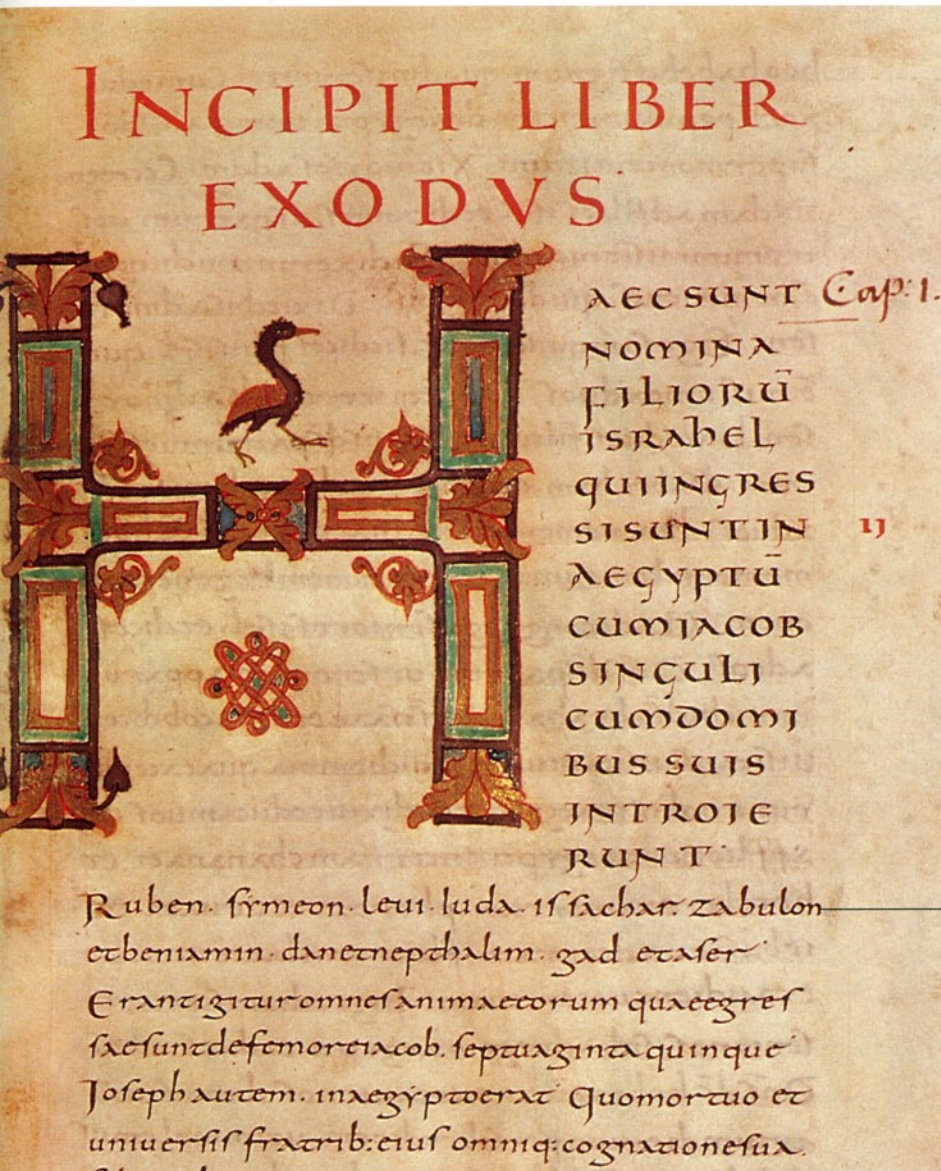 INCIPIT LIBER
EXODVS
HAEC SUNT Cap: 1.
NOMINA
FILIORŪ
ISRAhEL
QUIINGRES
SISUNTIN IJ
AEGYPTŪ
CUMIACOB
SINGULI
CUMDOMI
BUS SUIS
INTROIE
RUNT·
Ruben· symeon· leui· Iuda· issachar· zabulon
etbeniamin· danetnepthalim· gad etaser
Erantigituromnesanimaeeorum quaeegres
saesuntdefemoreiacob. septuaginta quinque
Ioseph autem· inaegyptoerat Quomortuo et
uniuersis fratrib: eius omniq: cognationesua.